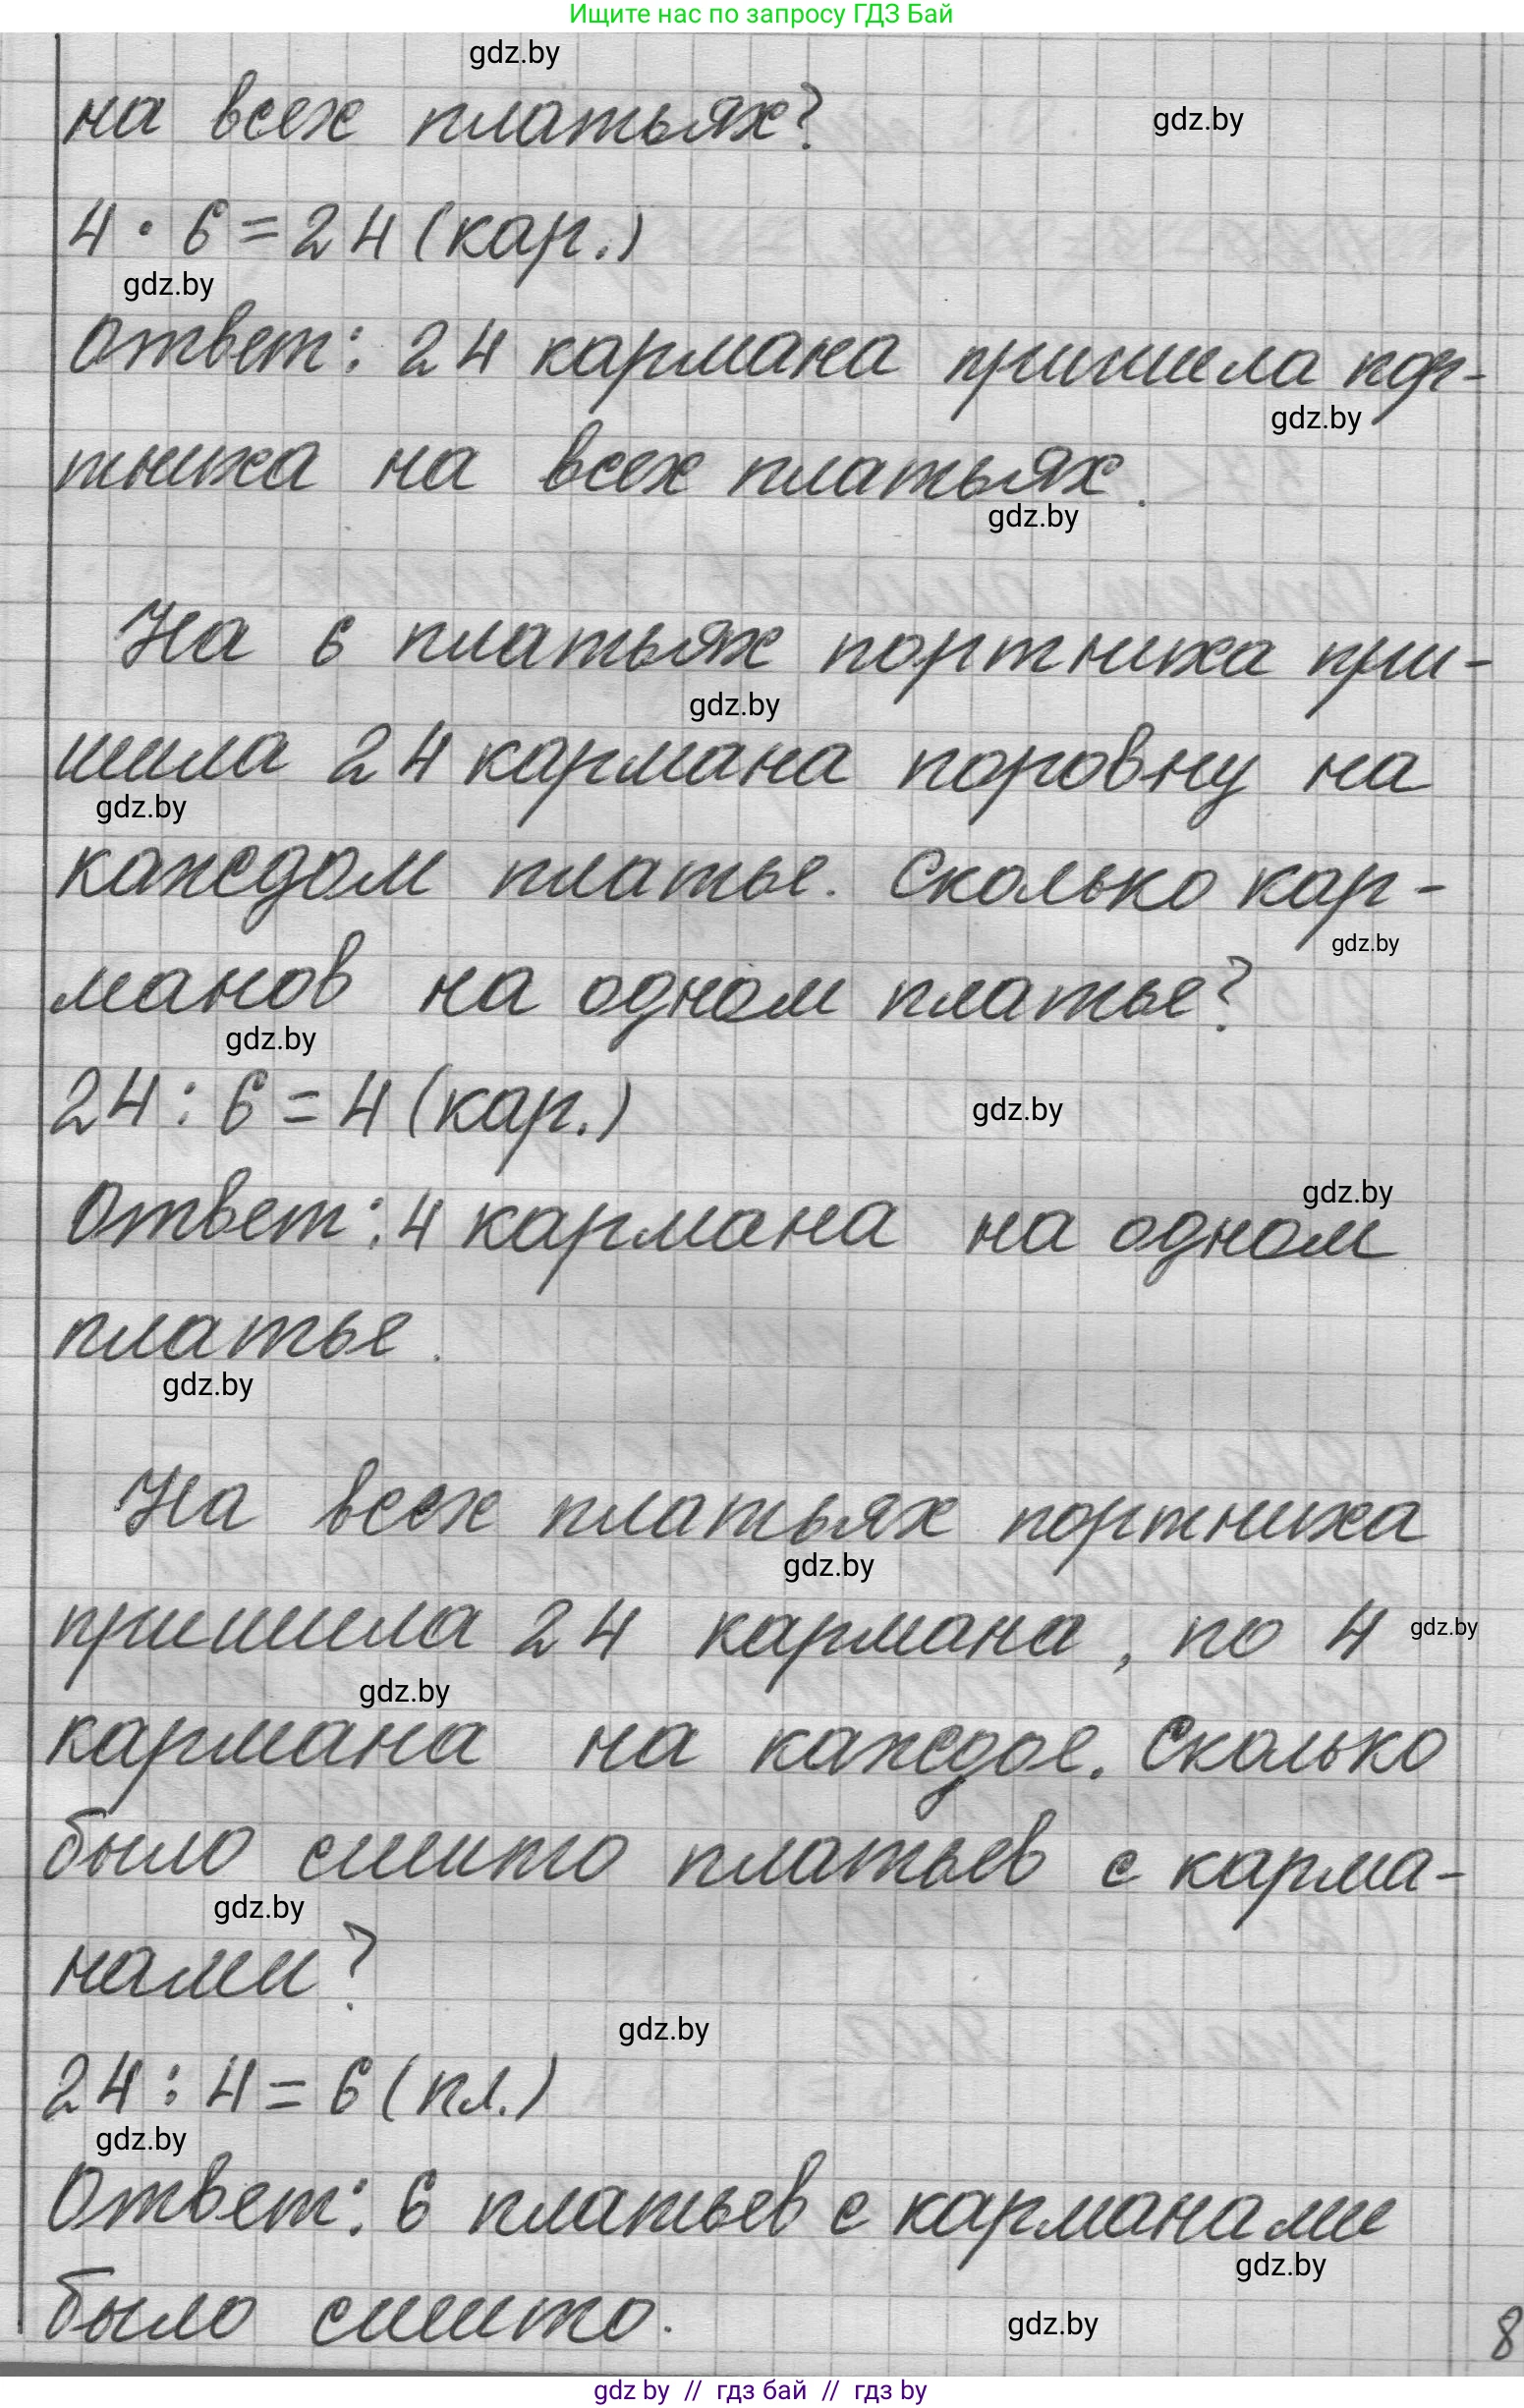 Ищите нас по запросу ГДЗ Бай
gdz.by
на всех платьях?
gdz.by
4 · 6 = 24 (кар.)
gdz.by
Ответ: 24 кармана пришила пор-
gdz.by
тниха на всех платьях.
gdz.by
На 6 платьях портниха при-
gdz.by
шила 24 кармана поровну на
gdz.by
каждом платье. Сколько кар-
gdz.by
манов на одном платье?
gdz.by
24 : 6 = 4 (кар.)
gdz.by
gdz.by
Ответ: 4 кармана на одном
платье.
gdz.by
На всех платьях портниха
gdz.by
пришила 24 кармана, по 4
gdz.by
gdz.by
кармана на каждое. Сколько
было сшито платьев с карма-
gdz.by
нами?
gdz.by
24 : 4 = 6 (пл.)
gdz.by
Ответ: 6 платьев с карманами
gdz.by
было сшито.
gdz.by
8
gdz by // гдз бай // гдз by